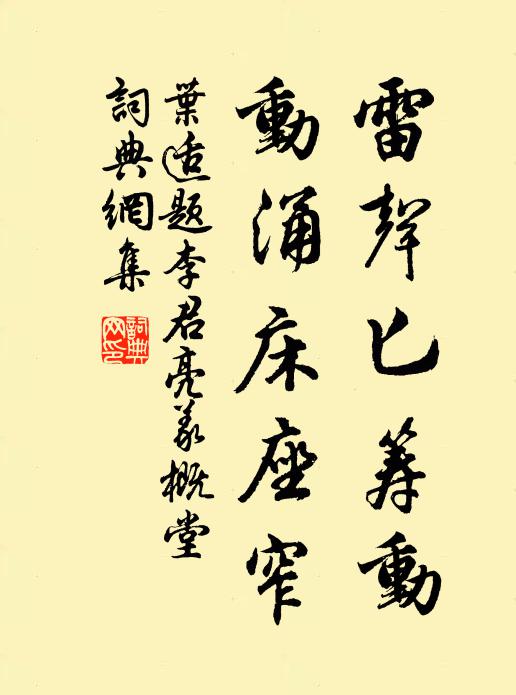 雷聲已筭動
動涌床座窄
葉适題李君亮義概堂
詞典網集
詞典网印